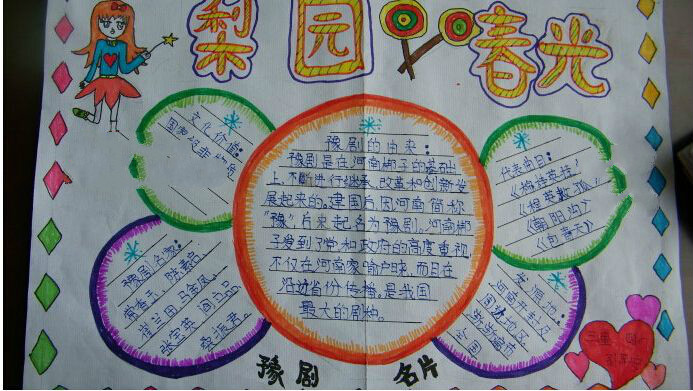 梨园春光
文化价值:
国家级非
豫剧的由来:
豫剧是在河南梆子的基础
上,不断进行继承、改革和创新发
展起来的。建国后因河南简称
"豫"后来起名为豫剧。河南梆
子受到了党和政府的高度重视,
不仅在河南家喻户晓,而且在
沿边省份传播。是我国
最大的剧种。
代表曲目:
《穆桂英挂》
《朝阳沟》
《包青天》
豫剧名家:
常香玉、陈素真
崔兰田、马金凤、
张宝英、阎立品、
桑振君。
发源地:
河南开封及
周边地区
全国
豫剧 名片